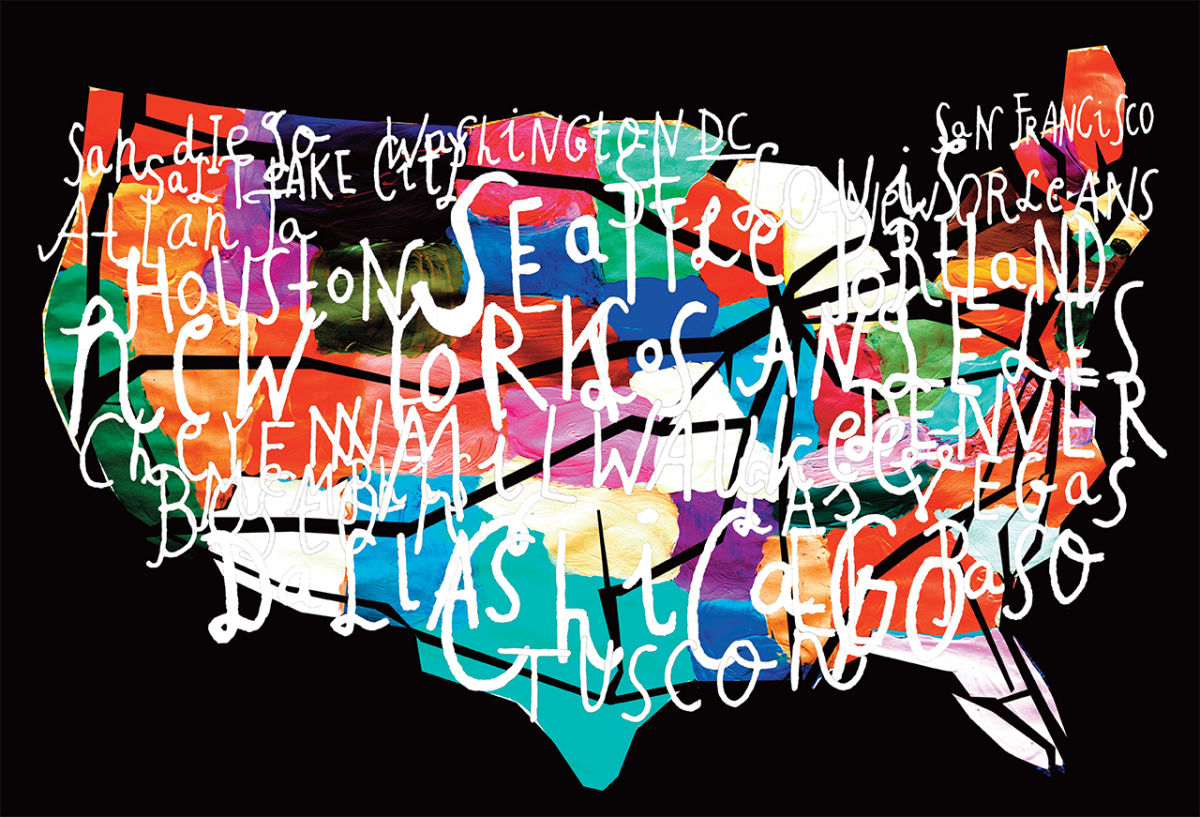 San dIego
WaShiNGtoN DC
SaN FRANCiSCO
SaLT LAKE CitY
St LOUiS
NeW ORLeANS
AtLanta
SEaTTLe
PORtLaND
HOUStoN
NeW YORK
LOS ANGELES
CheYENNe
MilWAUcKee
DENVER
MEMPhiS
BOStON
LAS VEGaS
DaLLAS
ChiCaGO
EL PaSO
TUSCON